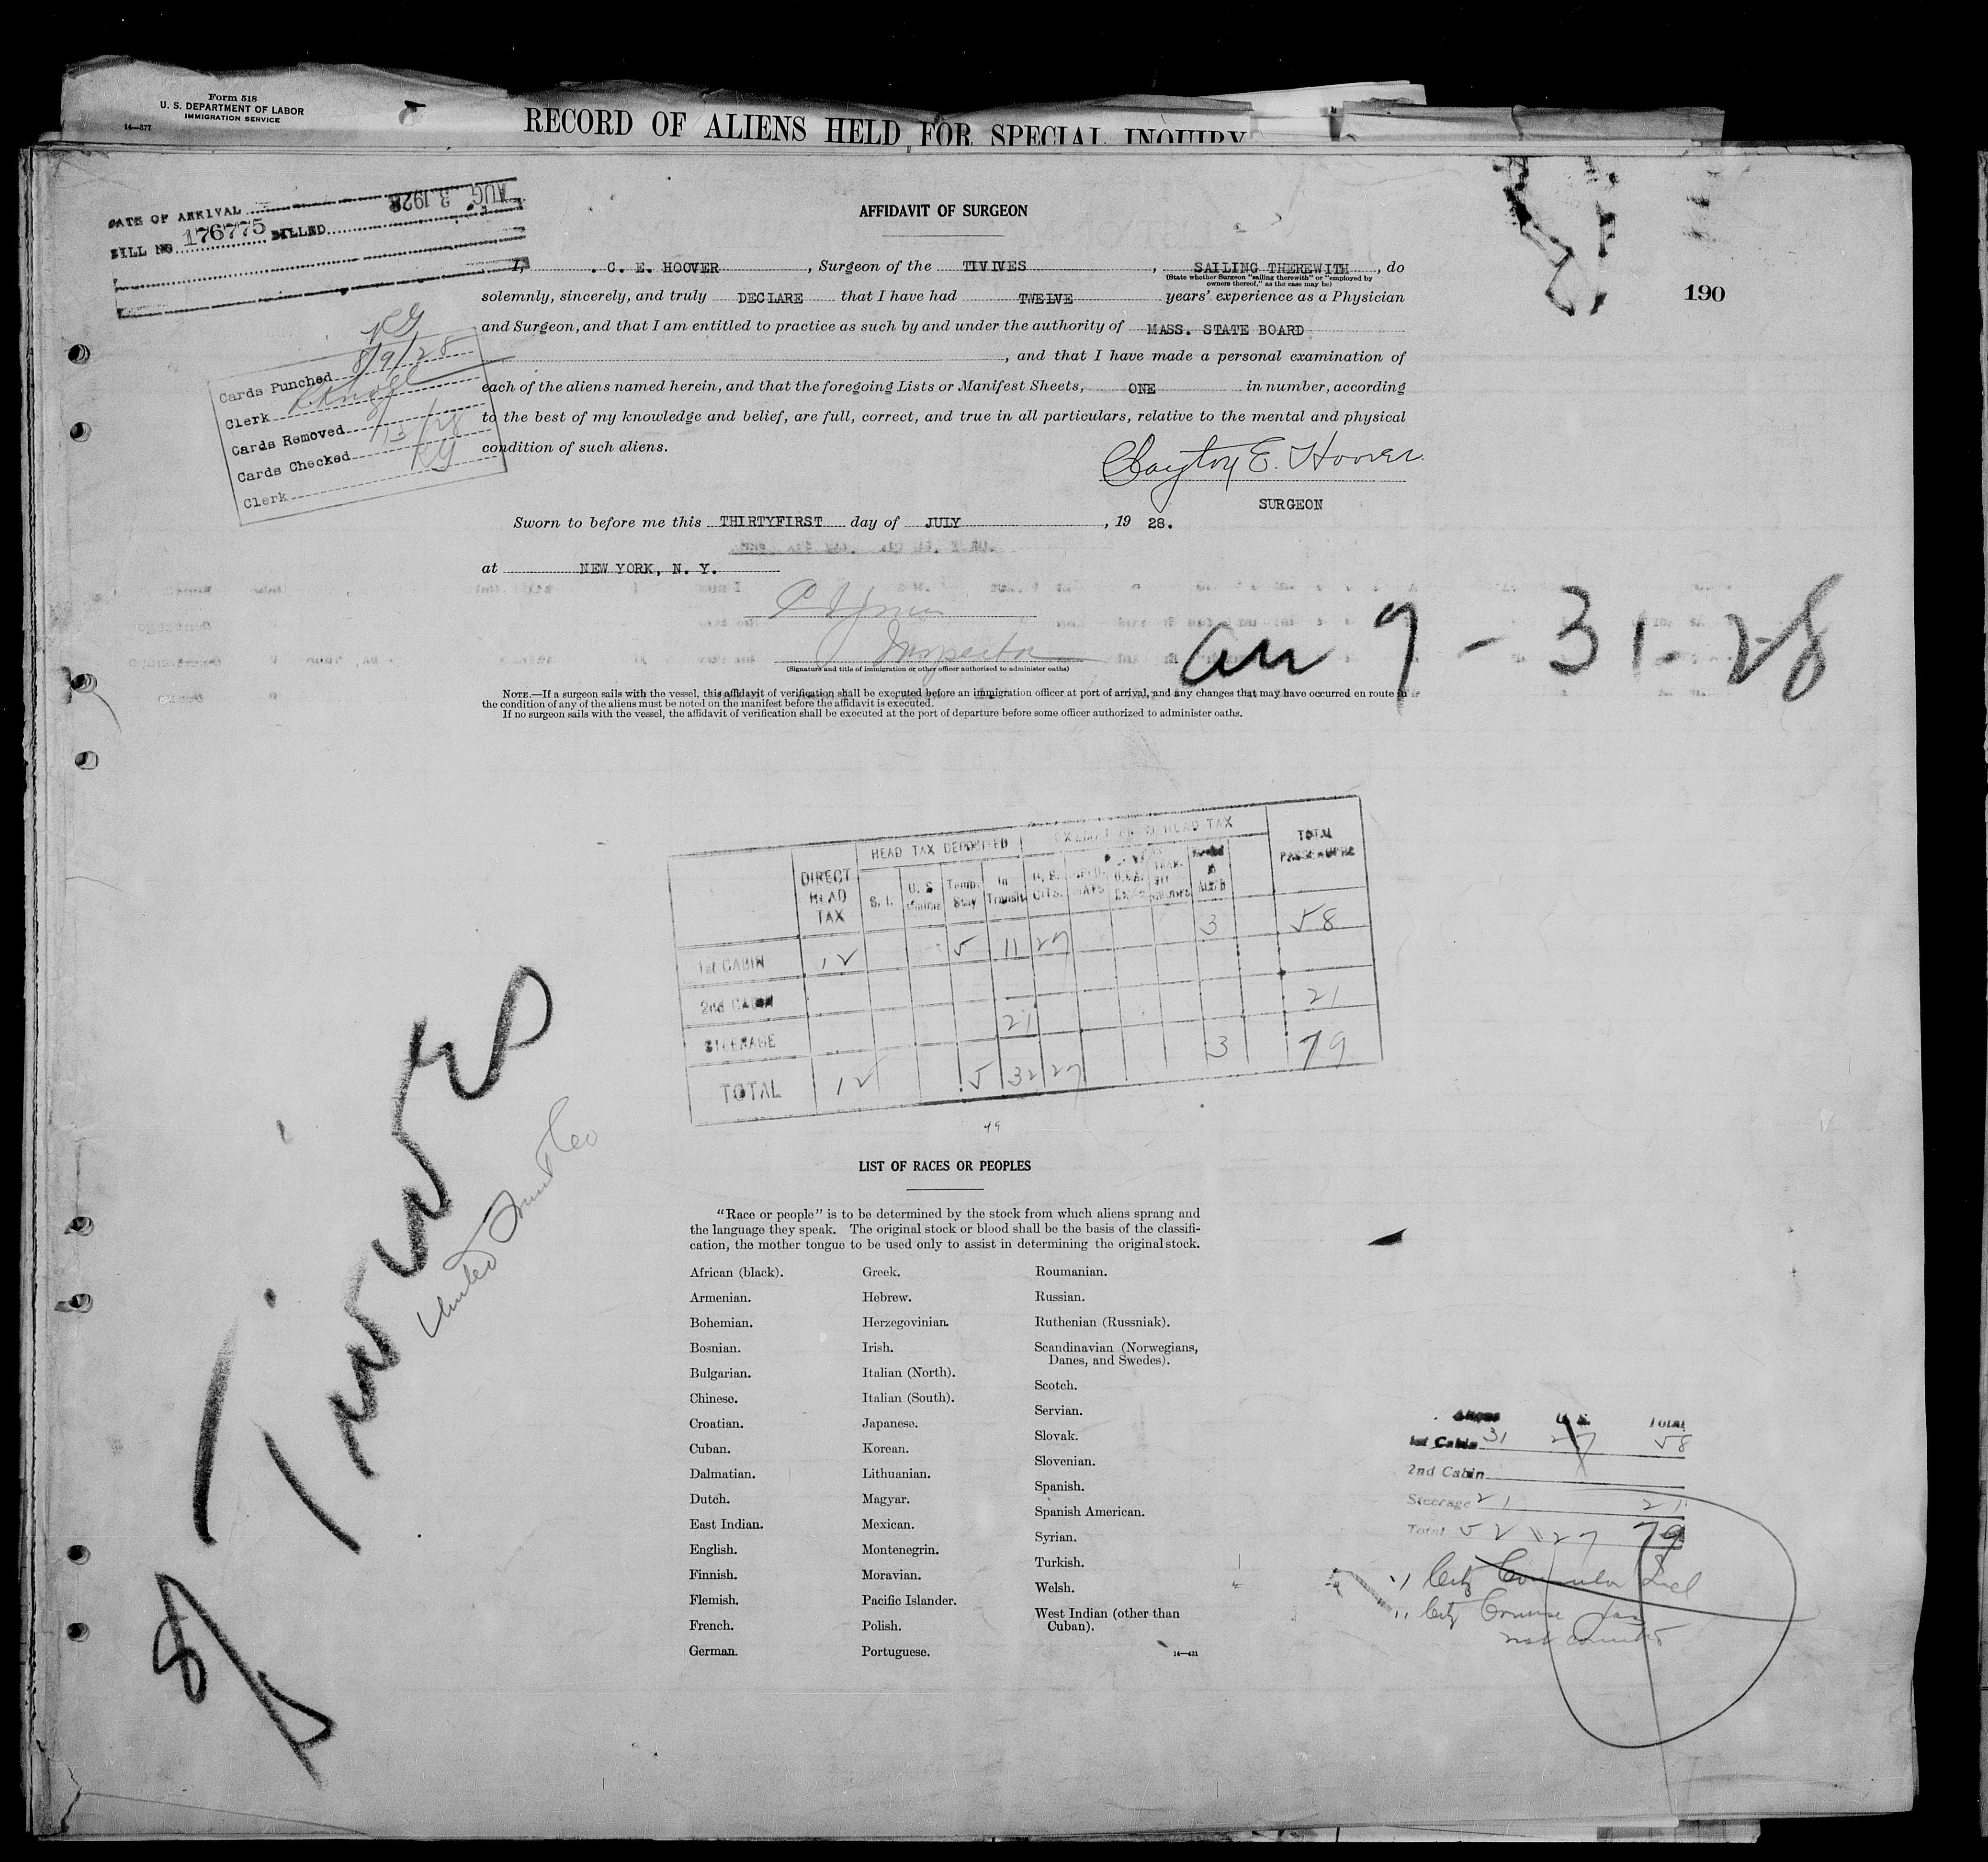 Form 518
U. S. DEPARTMENT OF LABOR
IMMIGRATION SERVICE
14—377
RECORD OF ALIENS HELD FOR SPECIAL INQUIRY
DATE OF ARRIVAL AUG 3 1928
BILL NO. 176775 BILLED
190
AFFIDAVIT OF SURGEON
I, C. E. HOOVER, Surgeon of the TIVIVES, SAILING THEREWITH, do
(State whether Surgeon "sailing therewith" or "employed by
owners thereof," as the case may be)
solemnly, sincerely, and truly DECLARE that I have had TWELVE years' experience as a Physician
and Surgeon, and that I am entitled to practice as such by and under the authority of MASS. STATE BOARD
, and that I have made a personal examination of
each of the aliens named herein, and that the foregoing Lists or Manifest Sheets, ONE in number, according
to the best of my knowledge and belief, are full, correct, and true in all particulars, relative to the mental and physical
condition of such aliens.
Clayton E. Hoover
SURGEON
Sworn to before me this THIRTYFIRST day of JULY, 19 28.
at NEW YORK, N. Y.
Inspector
(Signature and title of immigration or other officer authorized to administer oaths)
Cards Punched 8/9/28
Clerk
Cards Removed
Cards Checked
Clerk
NOTE.—If a surgeon sails with the vessel, this affidavit of verification shall be executed before an immigration officer at port of arrival, and any changes that may have occurred en route in
the condition of any of the aliens must be noted on the manifest before the affidavit is executed.
If no surgeon sails with the vessel, the affidavit of verification shall be executed at the port of departure before some officer authorized to administer oaths.
HEAD TAX DEPOSITED EXEMPT FROM HEAD TAX
DIRECT HEAD TAX S. I. Temp. Stay In Transit U. S. CITS. TOTAL PASSENGERS
1st CABIN 12 5 11 27 3 58
2nd CABIN
STEERAGE 21 21
TOTAL 12 5 32 27 3 79
49
Tivives
United Fruit Co
LIST OF RACES OR PEOPLES
"Race or people" is to be determined by the stock from which aliens sprang and
the language they speak. The original stock or blood shall be the basis of the classifi-
cation, the mother tongue to be used only to assist in determining the original stock.
African (black).
Armenian.
Bohemian.
Bosnian.
Bulgarian.
Chinese.
Croatian.
Cuban.
Dalmatian.
Dutch.
East Indian.
English.
Finnish.
Flemish.
French.
German.
Greek.
Hebrew.
Herzegovinian.
Irish.
Italian (North).
Italian (South).
Japanese.
Korean.
Lithuanian.
Magyar.
Mexican.
Montenegrin.
Moravian.
Pacific Islander.
Polish.
Portuguese.
Roumanian.
Russian.
Ruthenian (Russniak).
Scandinavian (Norwegians,
Danes, and Swedes).
Scotch.
Servian.
Slovak.
Slovenian.
Spanish.
Spanish American.
Syrian.
Turkish.
Welsh.
West Indian (other than
Cuban).
14—431
U. S. Total
1st Cabin 31 27 58
2nd Cabin
Steerage 21 21
Total 52 27 79
not counted